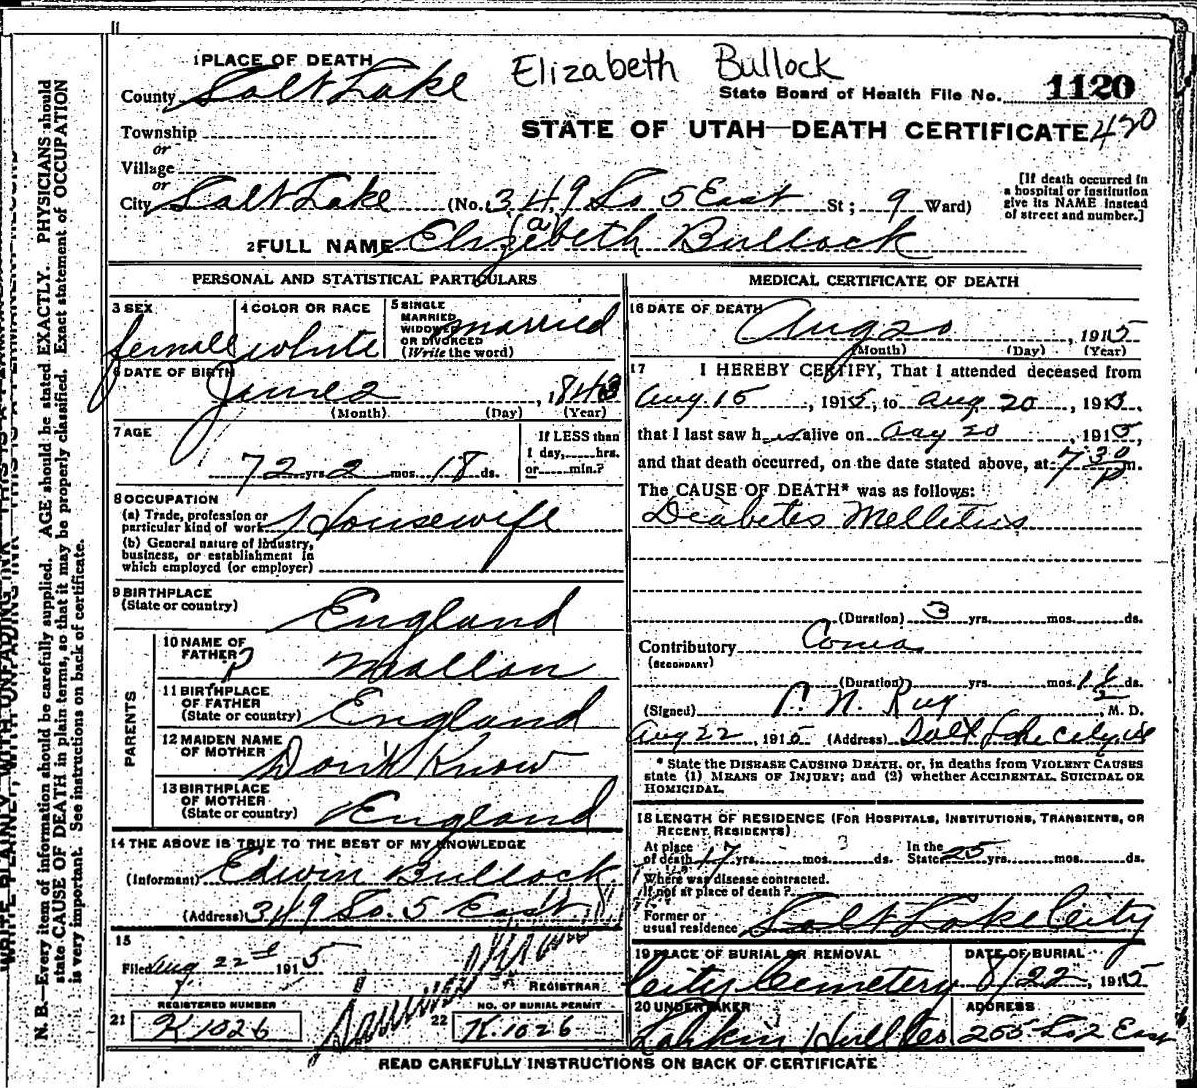 Elizabeth Bullock
1 PLACE OF DEATH
County Salt Lake
State Board of Health File No. 1120
Township
or
STATE OF UTAH—DEATH CERTIFICATE 420
Village
or
City Salt Lake (No. 349 So 5 East St; 9 Ward)
[If death occurred in
a hospital or institution
give its NAME instead
of street and number.]
2 FULL NAME Elizabeth Bullock
(a)
PERSONAL AND STATISTICAL PARTICULARS
3 SEX
female
4 COLOR OR RACE
white
5 SINGLE
MARRIED
WIDOWED
OR DIVORCED
(Write the word)
married
6 DATE OF BIRTH
June 2, 1843
(Month) (Day) (Year)
7 AGE
72 yrs. 2 mos. 18 ds.
If LESS than
1 day, hrs.
or min.?
8 OCCUPATION
(a) Trade, profession or
particular kind of work Housewife
(b) General nature of industry,
business, or establishment in
which employed (or employer)
9 BIRTHPLACE
(State or country) England
PARENTS
10 NAME OF
FATHER ?
11 BIRTHPLACE
OF FATHER
(State or country) England
12 MAIDEN NAME
OF MOTHER Don't Know
13 BIRTHPLACE
OF MOTHER
(State or country) England
14 THE ABOVE IS TRUE TO THE BEST OF MY KNOWLEDGE
(Informant) Edwin Bullock
(Address) 349 So. 5 East
15
Filed Aug 22nd 1915
REGISTRAR
REGISTERED NUMBER
21 K1026
NO. OF BURIAL PERMIT
22 K.1026
MEDICAL CERTIFICATE OF DEATH
16 DATE OF DEATH
Aug 20, 1915
(Month) (Day) (Year)
17 I HEREBY CERTIFY, That I attended deceased from
Aug 15, 1915, to Aug 20, 191
that I last saw her alive on Aug 20, 1915,
and that death occurred, on the date stated above, at 7 30 P m.
The CAUSE OF DEATH* was as follows:
Diabetes Mellitus
(Duration) 3 yrs. mos. ds.
Contributory Coma
(SECONDARY)
(Duration) yrs. mos. 1 1/2 ds.
(Signed) M. D.
Aug 22, 1915 (Address) Salt Lake City, Ut
* State the DISEASE CAUSING DEATH, or, in deaths from VIOLENT CAUSES
state (1) MEANS OF INJURY; and (2) whether ACCIDENTAL, SUICIDAL OR
HOMICIDAL.
18 LENGTH OF RESIDENCE (FOR HOSPITALS, INSTITUTIONS, TRANSIENTS, OR
RECENT RESIDENTS)
At place
of death 17 yrs. mos. ds.
In the
State 25 yrs. mos. ds.
Where was disease contracted,
If not at place of death?
Former or
usual residence Salt Lake City
19 PLACE OF BURIAL OR REMOVAL
City Cemetery
DATE OF BURIAL
8/22, 1915
20 UNDERTAKER
ADDRESS
255 So 2 East
READ CAREFULLY INSTRUCTIONS ON BACK OF CERTIFICATE
N. B.—Every item of information should be carefully supplied. AGE should be stated EXACTLY. PHYSICIANS should
state CAUSE OF DEATH in plain terms, so that it may be properly classified. Exact statement of OCCUPATION
is very important. See instructions on back of certificate.